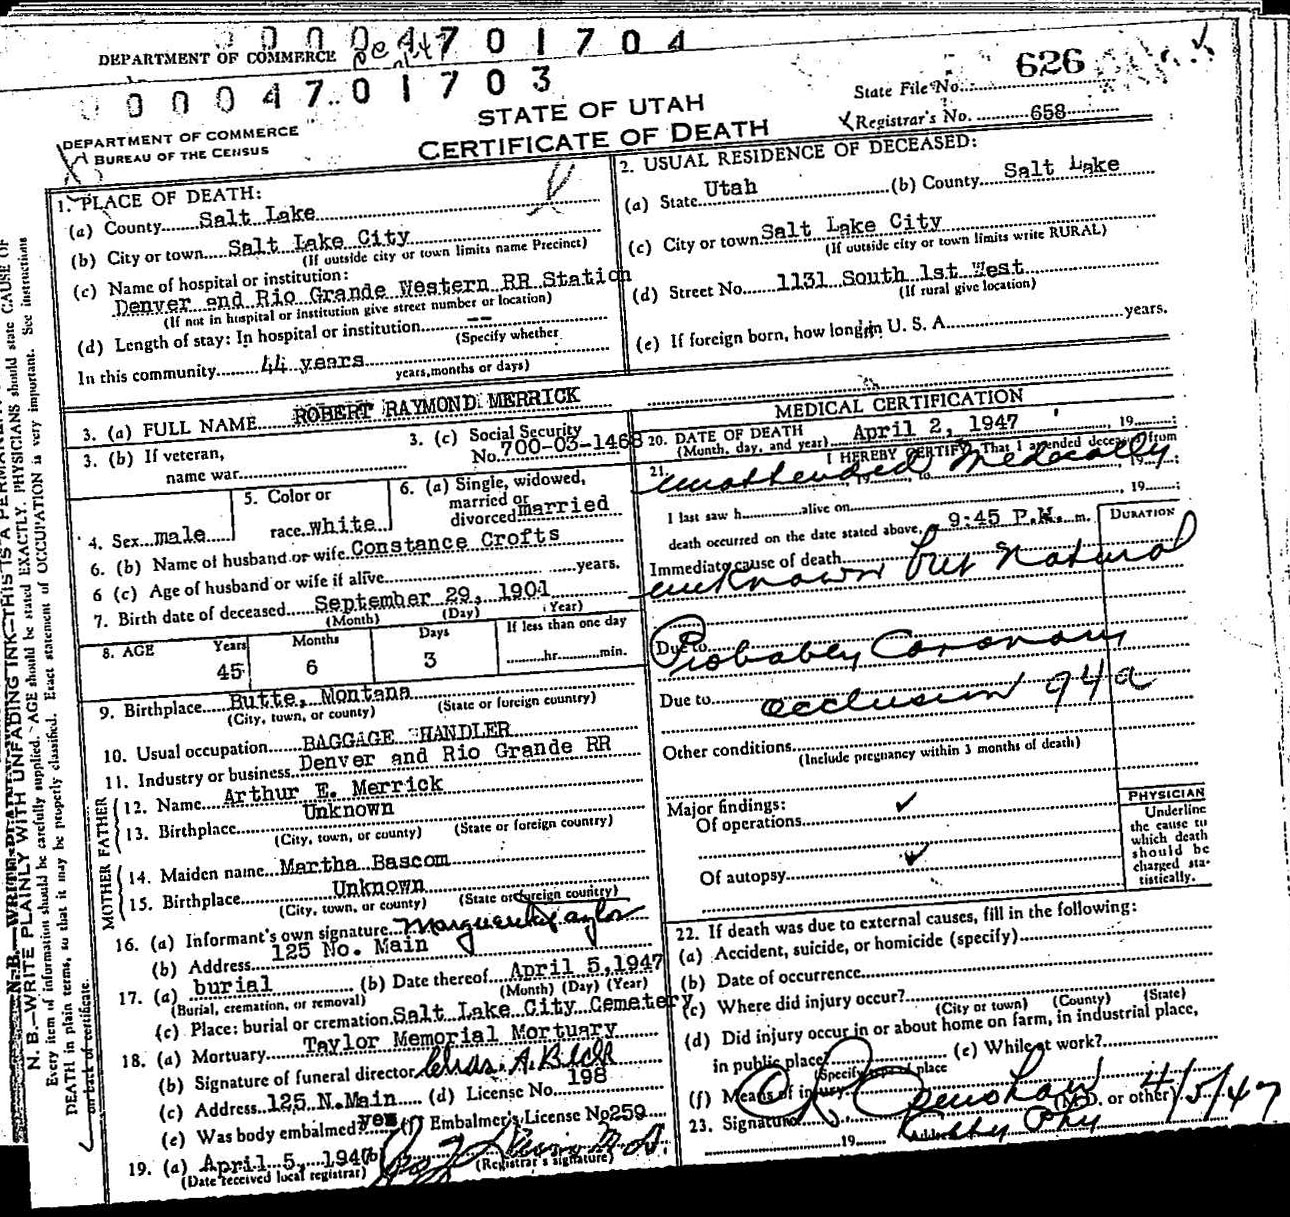 DEPARTMENT OF COMMERCE
0 0 0 0 4 7 0 1 7 0 4
0 0 0 0 4 7 0 1 7 0 3
626
State File No.
Registrar's No. 658
DEPARTMENT OF COMMERCE
BUREAU OF THE CENSUS
STATE OF UTAH
CERTIFICATE OF DEATH
N. B.—WRITE PLAINLY WITH UNFADING INK—THIS IS A PERMANENT
Every item of information should be carefully supplied. AGE should be stated EXACTLY. PHYSICIANS should state CAUSE OF
DEATH in plain terms, so that it may be properly classified. Exact statement of OCCUPATION is very important. See instructions
on back of certificate.
1. PLACE OF DEATH:
(a) County Salt Lake
(b) City or town Salt Lake City
(If outside city or town limits name Precinct)
(c) Name of hospital or institution:
Denver and Rio Grande Western RR Station
(If not in hospital or institution give street number or location)
(d) Length of stay: In hospital or institution --
(Specify whether
In this community 44 years
years, months or days)
2. USUAL RESIDENCE OF DECEASED:
(a) State Utah (b) County Salt Lake
(c) City or town Salt Lake City
(If outside city or town limits write RURAL)
(d) Street No. 1131 South 1st West
(If rural give location)
(e) If foreign born, how long in U. S. A. years.
3. (a) FULL NAME ROBERT RAYMOND MERRICK
3. (b) If veteran,
name war
3. (c) Social Security
No. 700-03-1468
4. Sex male
5. Color or
race white
6. (a) Single, widowed,
married or
divorced married
6. (b) Name of husband or wife Constance Crofts
6 (c) Age of husband or wife if alive years.
7. Birth date of deceased September 29, 1901
(Month) (Day) (Year)
8. AGE Years Months Days If less than one day
45 6 3 hr. min.
9. Birthplace Butte, Montana
(City, town, or county) (State or foreign country)
10. Usual occupation BAGGAGE HANDLER
11. Industry or business Denver and Rio Grande RR
MOTHER FATHER
12. Name Arthur E. Merrick
13. Birthplace Unknown
(City, town, or county) (State or foreign country)
14. Maiden name Martha Bascom
15. Birthplace Unknown
(City, town, or county) (State or foreign country)
16. (a) Informant's own signature Marguerite Taylor
(b) Address 125 No. Main
17. (a) burial (b) Date thereof April 5, 1947
(Burial, cremation, or removal) (Month) (Day) (Year)
(c) Place: burial or cremation Salt Lake City Cemetery
18. (a) Mortuary Taylor Memorial Mortuary
(b) Signature of funeral director Chas. A.
(c) Address 125 N. Main (d) License No. 198
(e) Was body embalmed? yes (f) Embalmer's License No 259
19. (a) April 5, 1947 (b)
(Date received local registrar) (Registrar's signature)
MEDICAL CERTIFICATION
20. DATE OF DEATH April 2, 1947 , 19 ;
(Month, day, and year)
21. I HEREBY CERTIFY That I attended deceased from
unattended medically
, 19 , to , 19 ;
I last saw h alive on , 19 ;
death occurred on the date stated above, a 9:45 P.M. m.
DURATION
Immediate cause of death
unknown but natural
Due to Probably Coronary
Due to occlusion 94a
Other conditions
(Include pregnancy within 3 months of death)
Major findings:
Of operations ✓
Of autopsy ✓
PHYSICIAN
Underline
the cause to
which death
should be
charged sta-
tistically.
22. If death was due to external causes, fill in the following:
(a) Accident, suicide, or homicide (specify)
(b) Date of occurrence
(c) Where did injury occur?
(City or town) (County) (State)
(d) Did injury occur in or about home on farm, in industrial place,
in public place? (e) While at work?
(Specify type of place
(f) Means of injury
23. Signature Openshaw (M.D. or other) 4/5/47
19 Address Phy